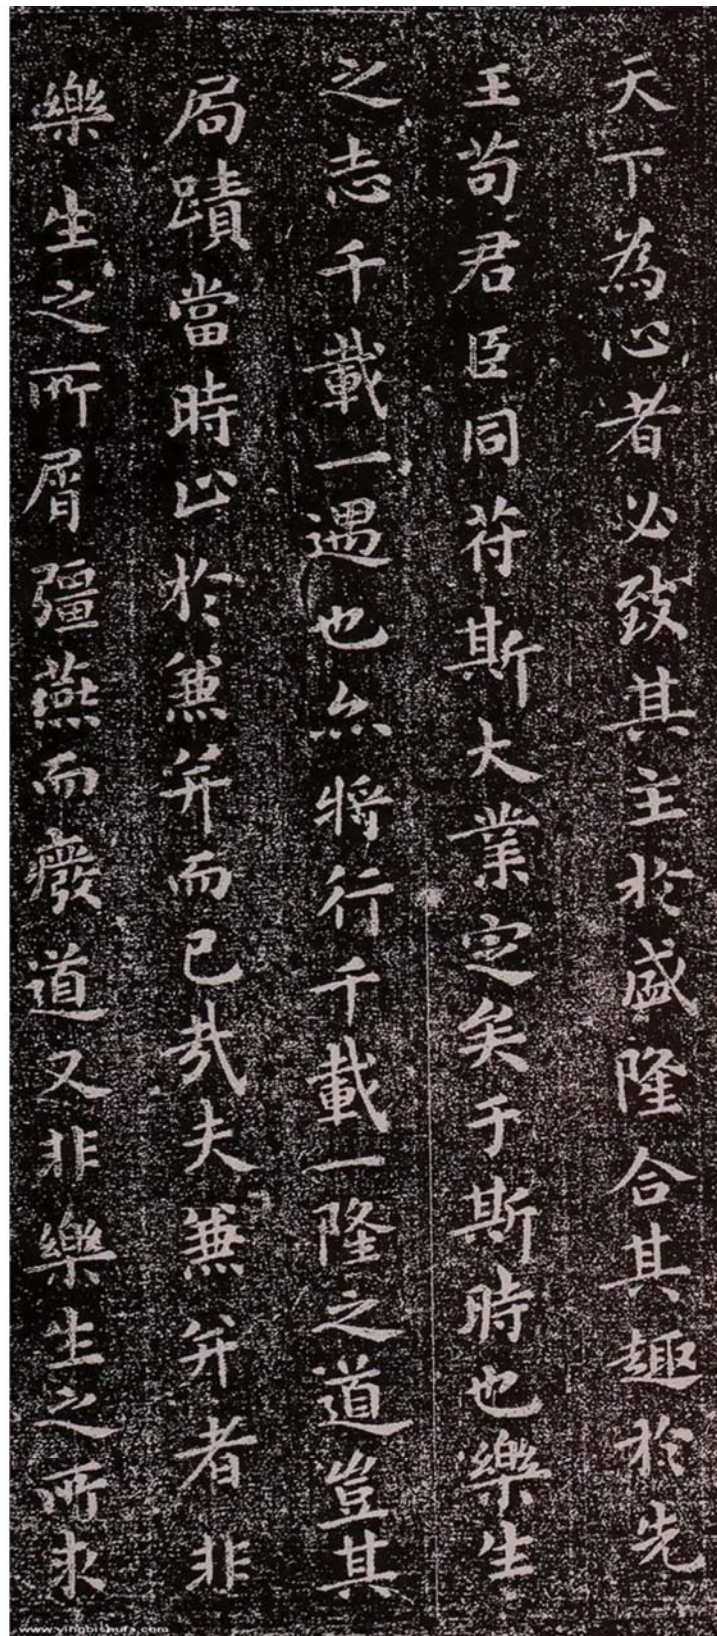 天下為心者必致其主於盛隆合其趣於先
王苟君臣同符斯大業定矣于斯時也樂生
之志千載一遇也亦將行千載一隆之道豈其
局蹟當時止於兼并而已哉夫兼并者非
樂生之所屑彊燕而癈道又非樂生之所求
www.yingbishufa.com